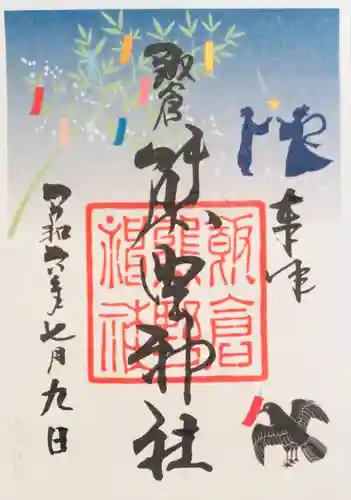 奉拝
飯倉
熊野神社
飯倉
熊野
神社
令和六年七月九日